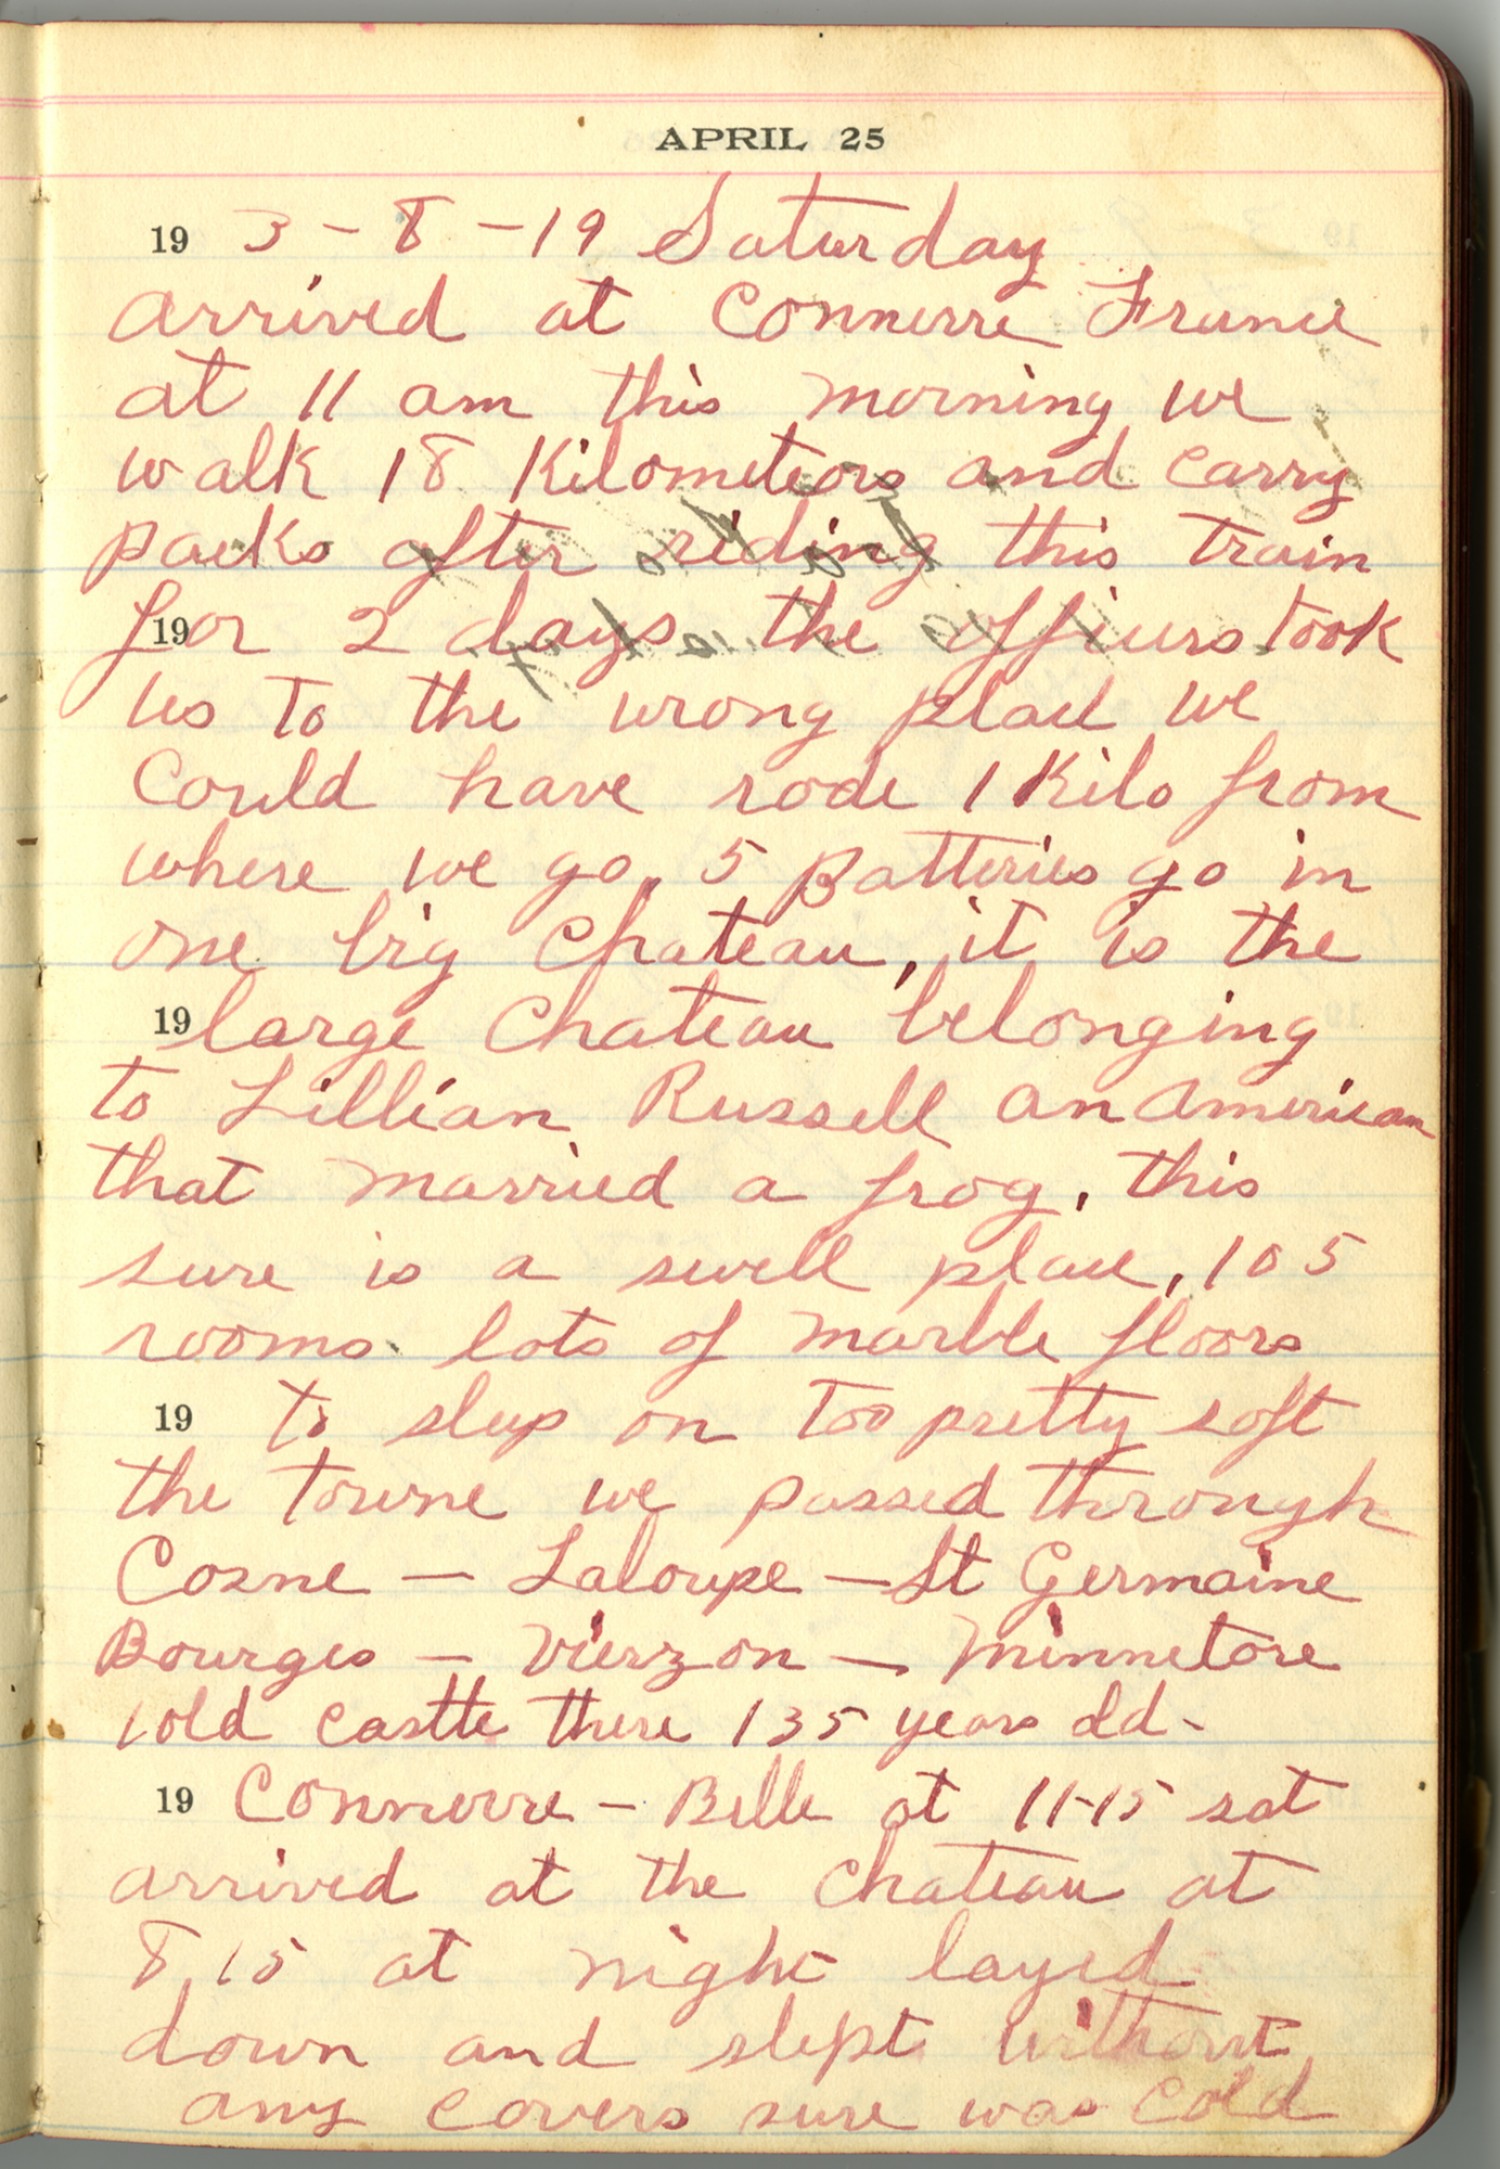 APRIL 25
19 3 - 8 - 19 Saturday
arrived at Connerre France
at 11 am this morning we
walk 18 Kilometeors and carry
packs after riding this train
for 2 days the officers took
19
us to the wrong place we
could have rode 1 Kilo from
where we go, 5 Batteries go in
one big Chateau, it is the
19 large Chateau belonging
to Lillian Russell an American
that married a frog, this
sure is a swell place, 105
rooms lots of marble floors
19 to sleep on too pretty soft
the towne we passed through
Cosne — Laloupe — St Germaine
Bourges — Vierzon — Minnetore
1 old castle there 135 years old -
19 Connerre - Bille at 11-15 sat
arrived at the Chateau at
8,15 at night layed
down and slept without
any covers sure was cold